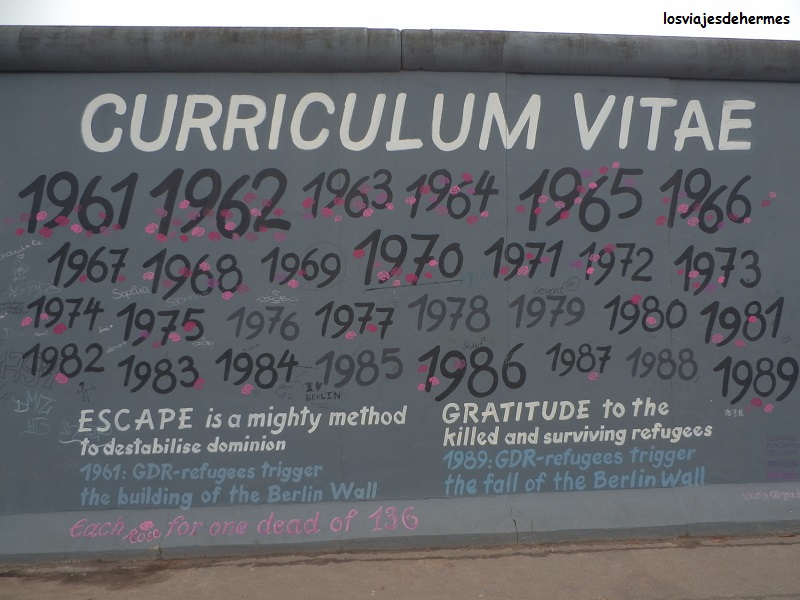 losviajesdehermes
CURRICULUM VITAE
1961 1962 1963 1964 1965 1966
1967 1968 1969 1970 1971 1972 1973
1974 1975 1976 1977 1978 1979 1980 1981
1982 1983 1984 1985 1986 1987 1988 1989
BERLIN
ESCAPE is a mighty method
to destabilise dominion
1961: GDR-refugees trigger
the building of the Berlin Wall
GRATITUDE to the
killed and surviving refugees
1989: GDR-refugees trigger
the fall of the Berlin Wall
Each rose for one dead of 136